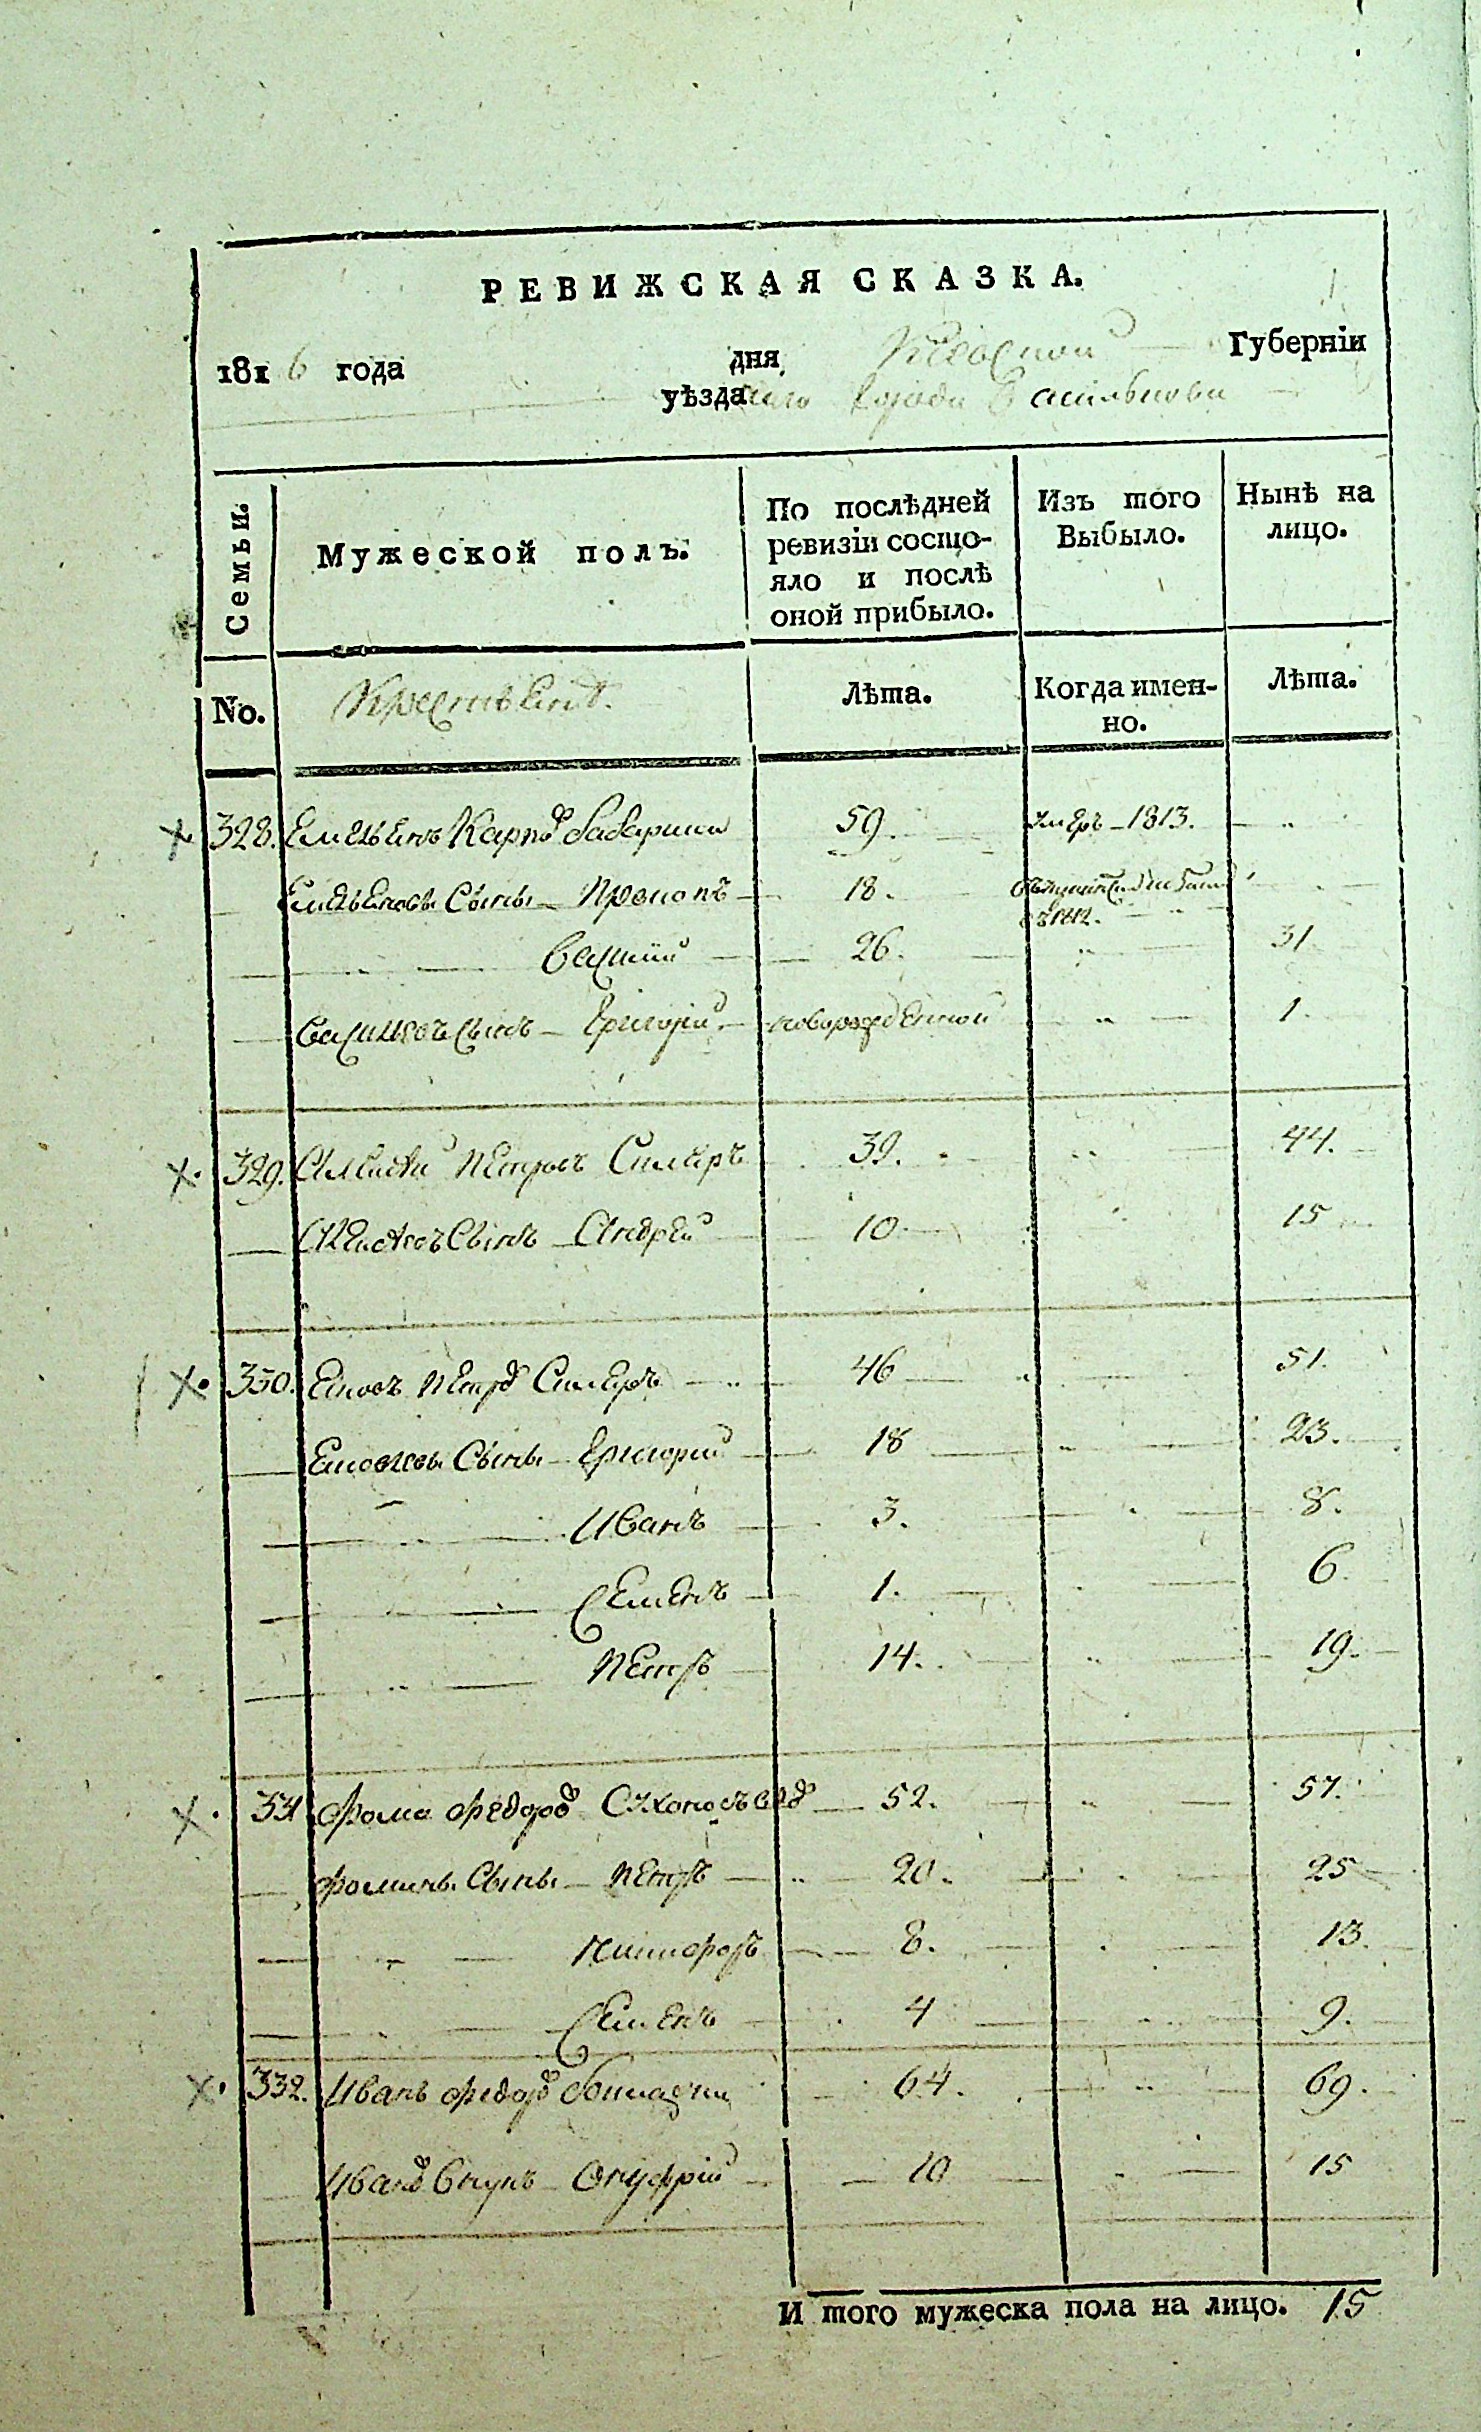 РЕВИЖСКАЯ СКАЗКА.
1816 года дня Киевской Губерніи
уѣзда города Василькова
Семьи. Мужеской полъ. По послѣдней ревизіи состояло и послѣ оной прибыло. Изъ того Выбыло. Нынѣ на лицо.
No. Крестьянъ. Лѣта. Когда именно. Лѣта.
328. Емельянъ Карповъ 59. умеръ 1813.
Емельяновы Сыны Прокопъ 18. 1812.
Василій 26. 31
Васильевъ Сынъ Григорій новорожденной 1.
329. Алексѣй Петровъ 39. 44.
Алексѣевъ Сынъ Андрей 10 15
330. Петровъ 46 51.
Сыны Григорій 18 23.
Иванъ 3. 8.
Семенъ 1. 6.
Петръ 14. 19.
331 Фома Федоровъ 52. 57.
Фомины Сыны Петръ 20. 25
Никифоръ 8. 13.
Семенъ 4 9.
332. Иванъ Федоровъ 64. 69.
Ивановъ Внукъ Онуфрій 10 15
И того мужеска пола на лицо. 15